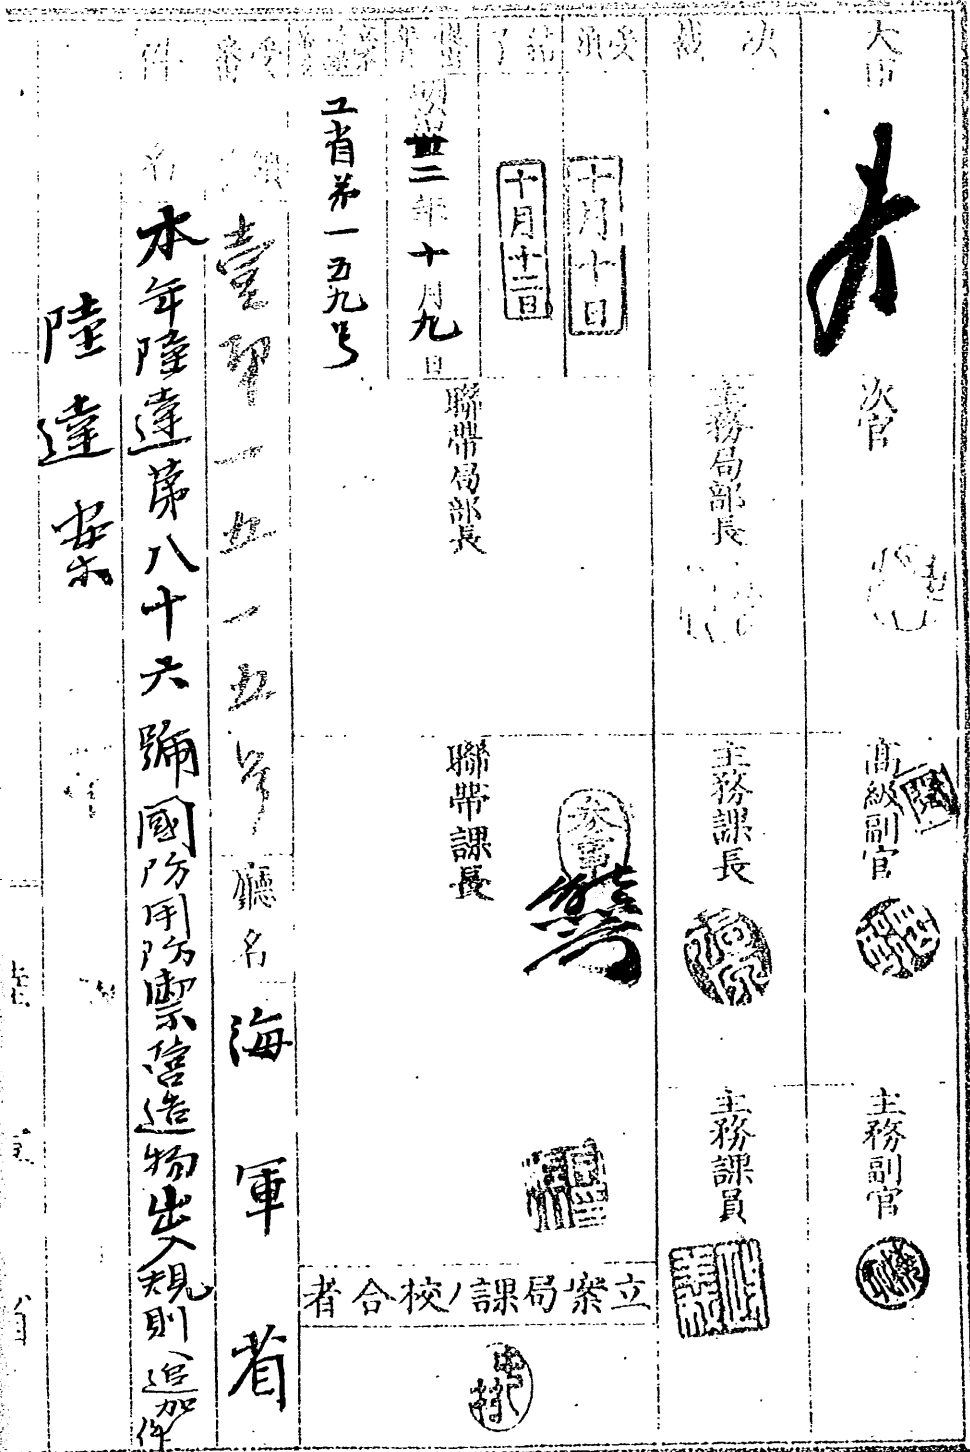 大臣
次官
高級副官
主務副官
決裁
主務局部長
主務課長
主務課員
受領
十月十日
結了
十月十二日
聯帶局部長
聯帶課長
立案局課ノ校合者
明治卅二年十月九日
工省第一五九号
受領番号
壹第一五一五号
廳名
海軍省
件名
本年陸達第八十六號國防用防禦營造物出入規則追加件
陸達案